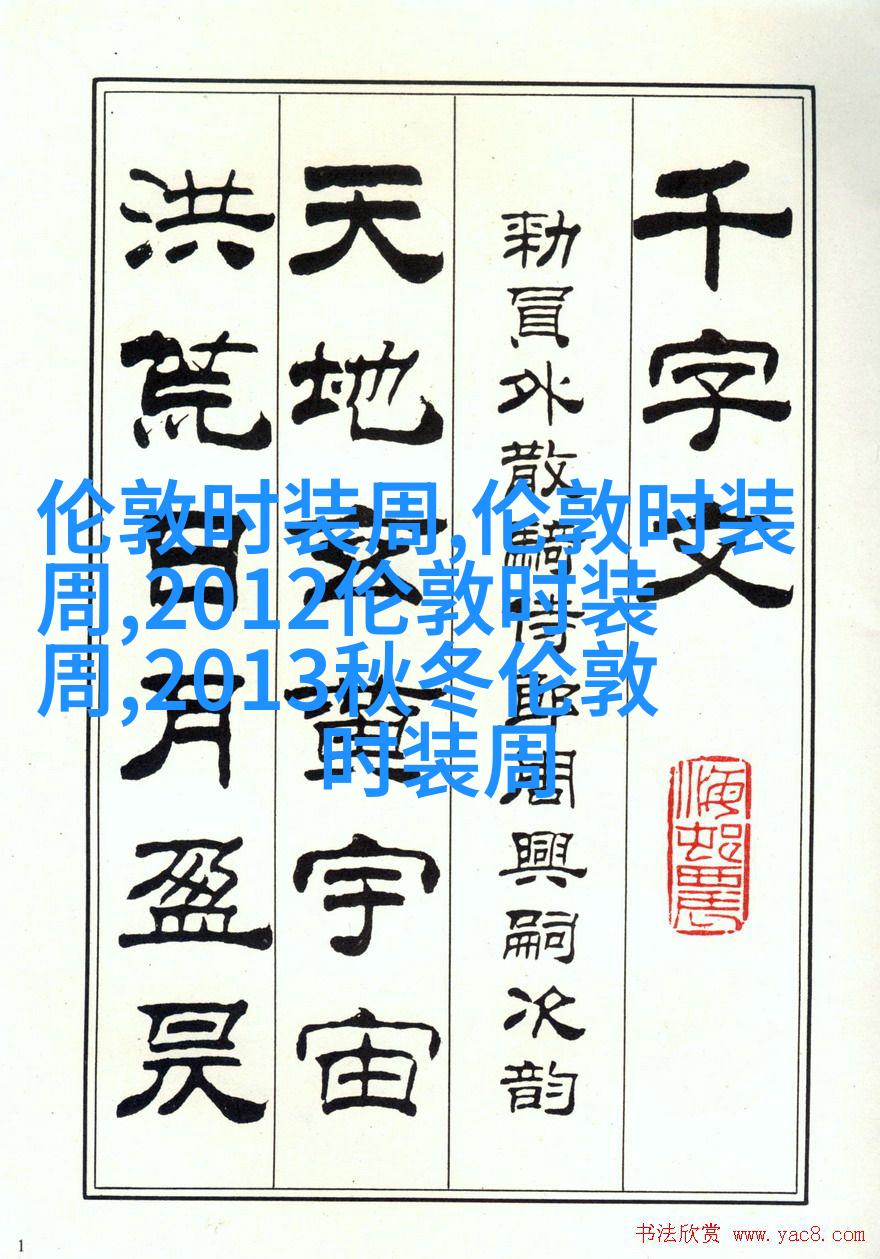 千字文
勅員外散騎侍郎周興嗣次韵
天地玄黄宇宙
洪荒日月盈昃
伦敦时装周,伦敦时装
周,2012伦敦时装
周,2013秋冬伦敦
时装周
1
书法欣赏 www.yac8.com